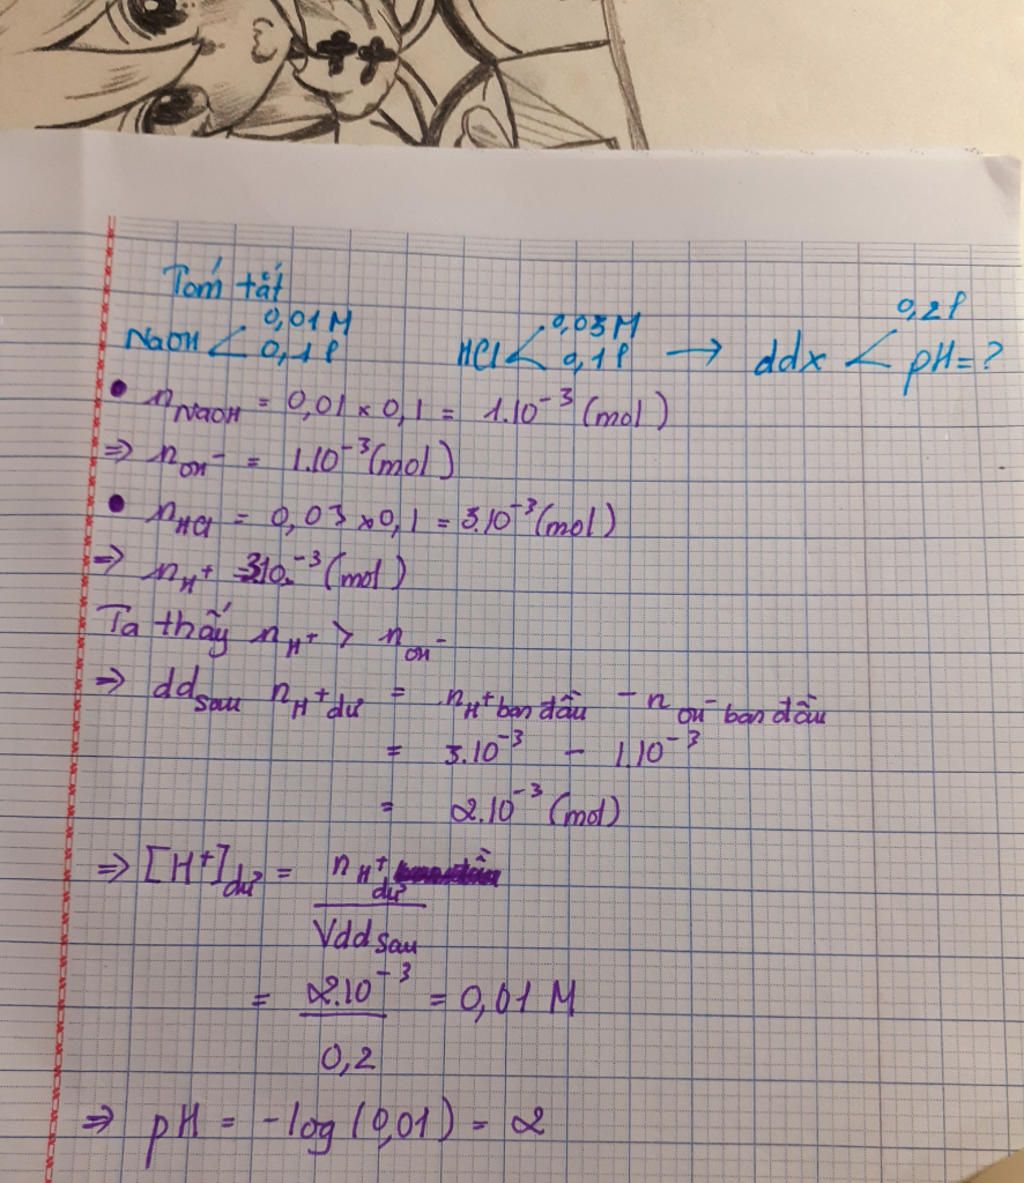 Tóm tắt
NaOH < 0,01M 0,1l HCl < 0,03M 0,1l → ddx < 0,2l pH = ?
• n NaOH = 0,01 x 0,1 = 1.10⁻³ (mol)
⇒ n OH⁻ = 1.10⁻³ (mol)
• n HCl = 0,03 x 0,1 = 3.10⁻³ (mol)
⇒ n H⁺ = 310.⁻³ (mol)
Ta thấy n H⁺ > n OH⁻
⇒ dd sau n H⁺ dư = n H⁺ ban đầu - n OH⁻ ban đầu
= 3.10⁻³ - 1.10⁻³
= 2.10⁻³ (mol)
⇒ [H⁺] dư = n H⁺ dư
Vdd sau
= 2.10⁻³ = 0,01 M
0,2
⇒ pH = -log (0,01) = 2